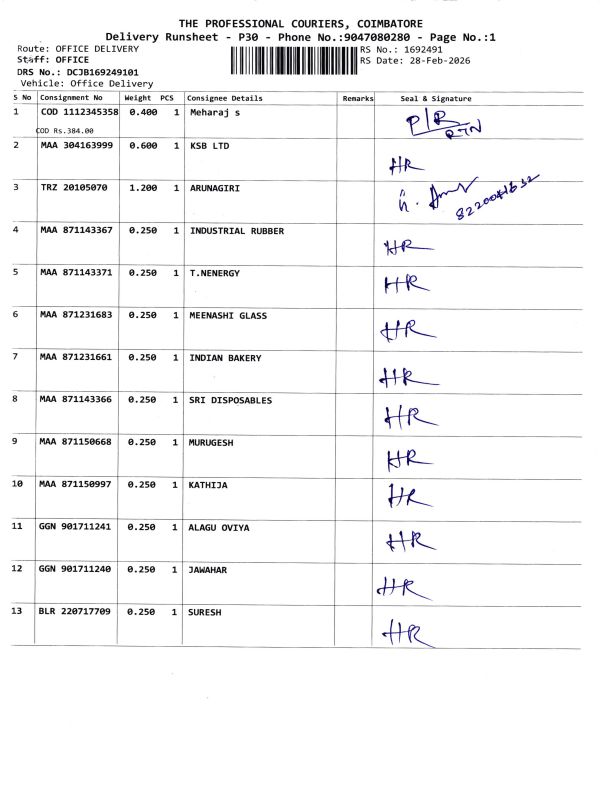 THE PROFESSIONAL COURIERS, COIMBATORE
Delivery Runsheet - P30 - Phone No.:9047080280 - Page No.:1
Route: OFFICE DELIVERY RS No.: 1692491
Staff: OFFICE RS Date: 28-Feb-2026
DRS No.: DCJB169249101
Vehicle: Office Delivery
S No Consignment No Weight PCS Consignee Details Remarks Seal & Signature
1 COD 1112345358 0.400 1 Meharaj s P/R
COD Rs.384.00 RTN
2 MAA 304163999 0.600 1 KSB LTD HR
3 TRZ 20105070 1.200 1 ARUNAGIRI
4 MAA 871143367 0.250 1 INDUSTRIAL RUBBER HR
5 MAA 871143371 0.250 1 T.NENERGY HR
6 MAA 871231683 0.250 1 MEENASHI GLASS HR
7 MAA 871231661 0.250 1 INDIAN BAKERY HR
8 MAA 871143366 0.250 1 SRI DISPOSABLES HR
9 MAA 871150668 0.250 1 MURUGESH HR
10 MAA 871150997 0.250 1 KATHIJA HR
11 GGN 901711241 0.250 1 ALAGU OVIYA HR
12 GGN 901711240 0.250 1 JAWAHAR HR
13 BLR 220717709 0.250 1 SURESH HR